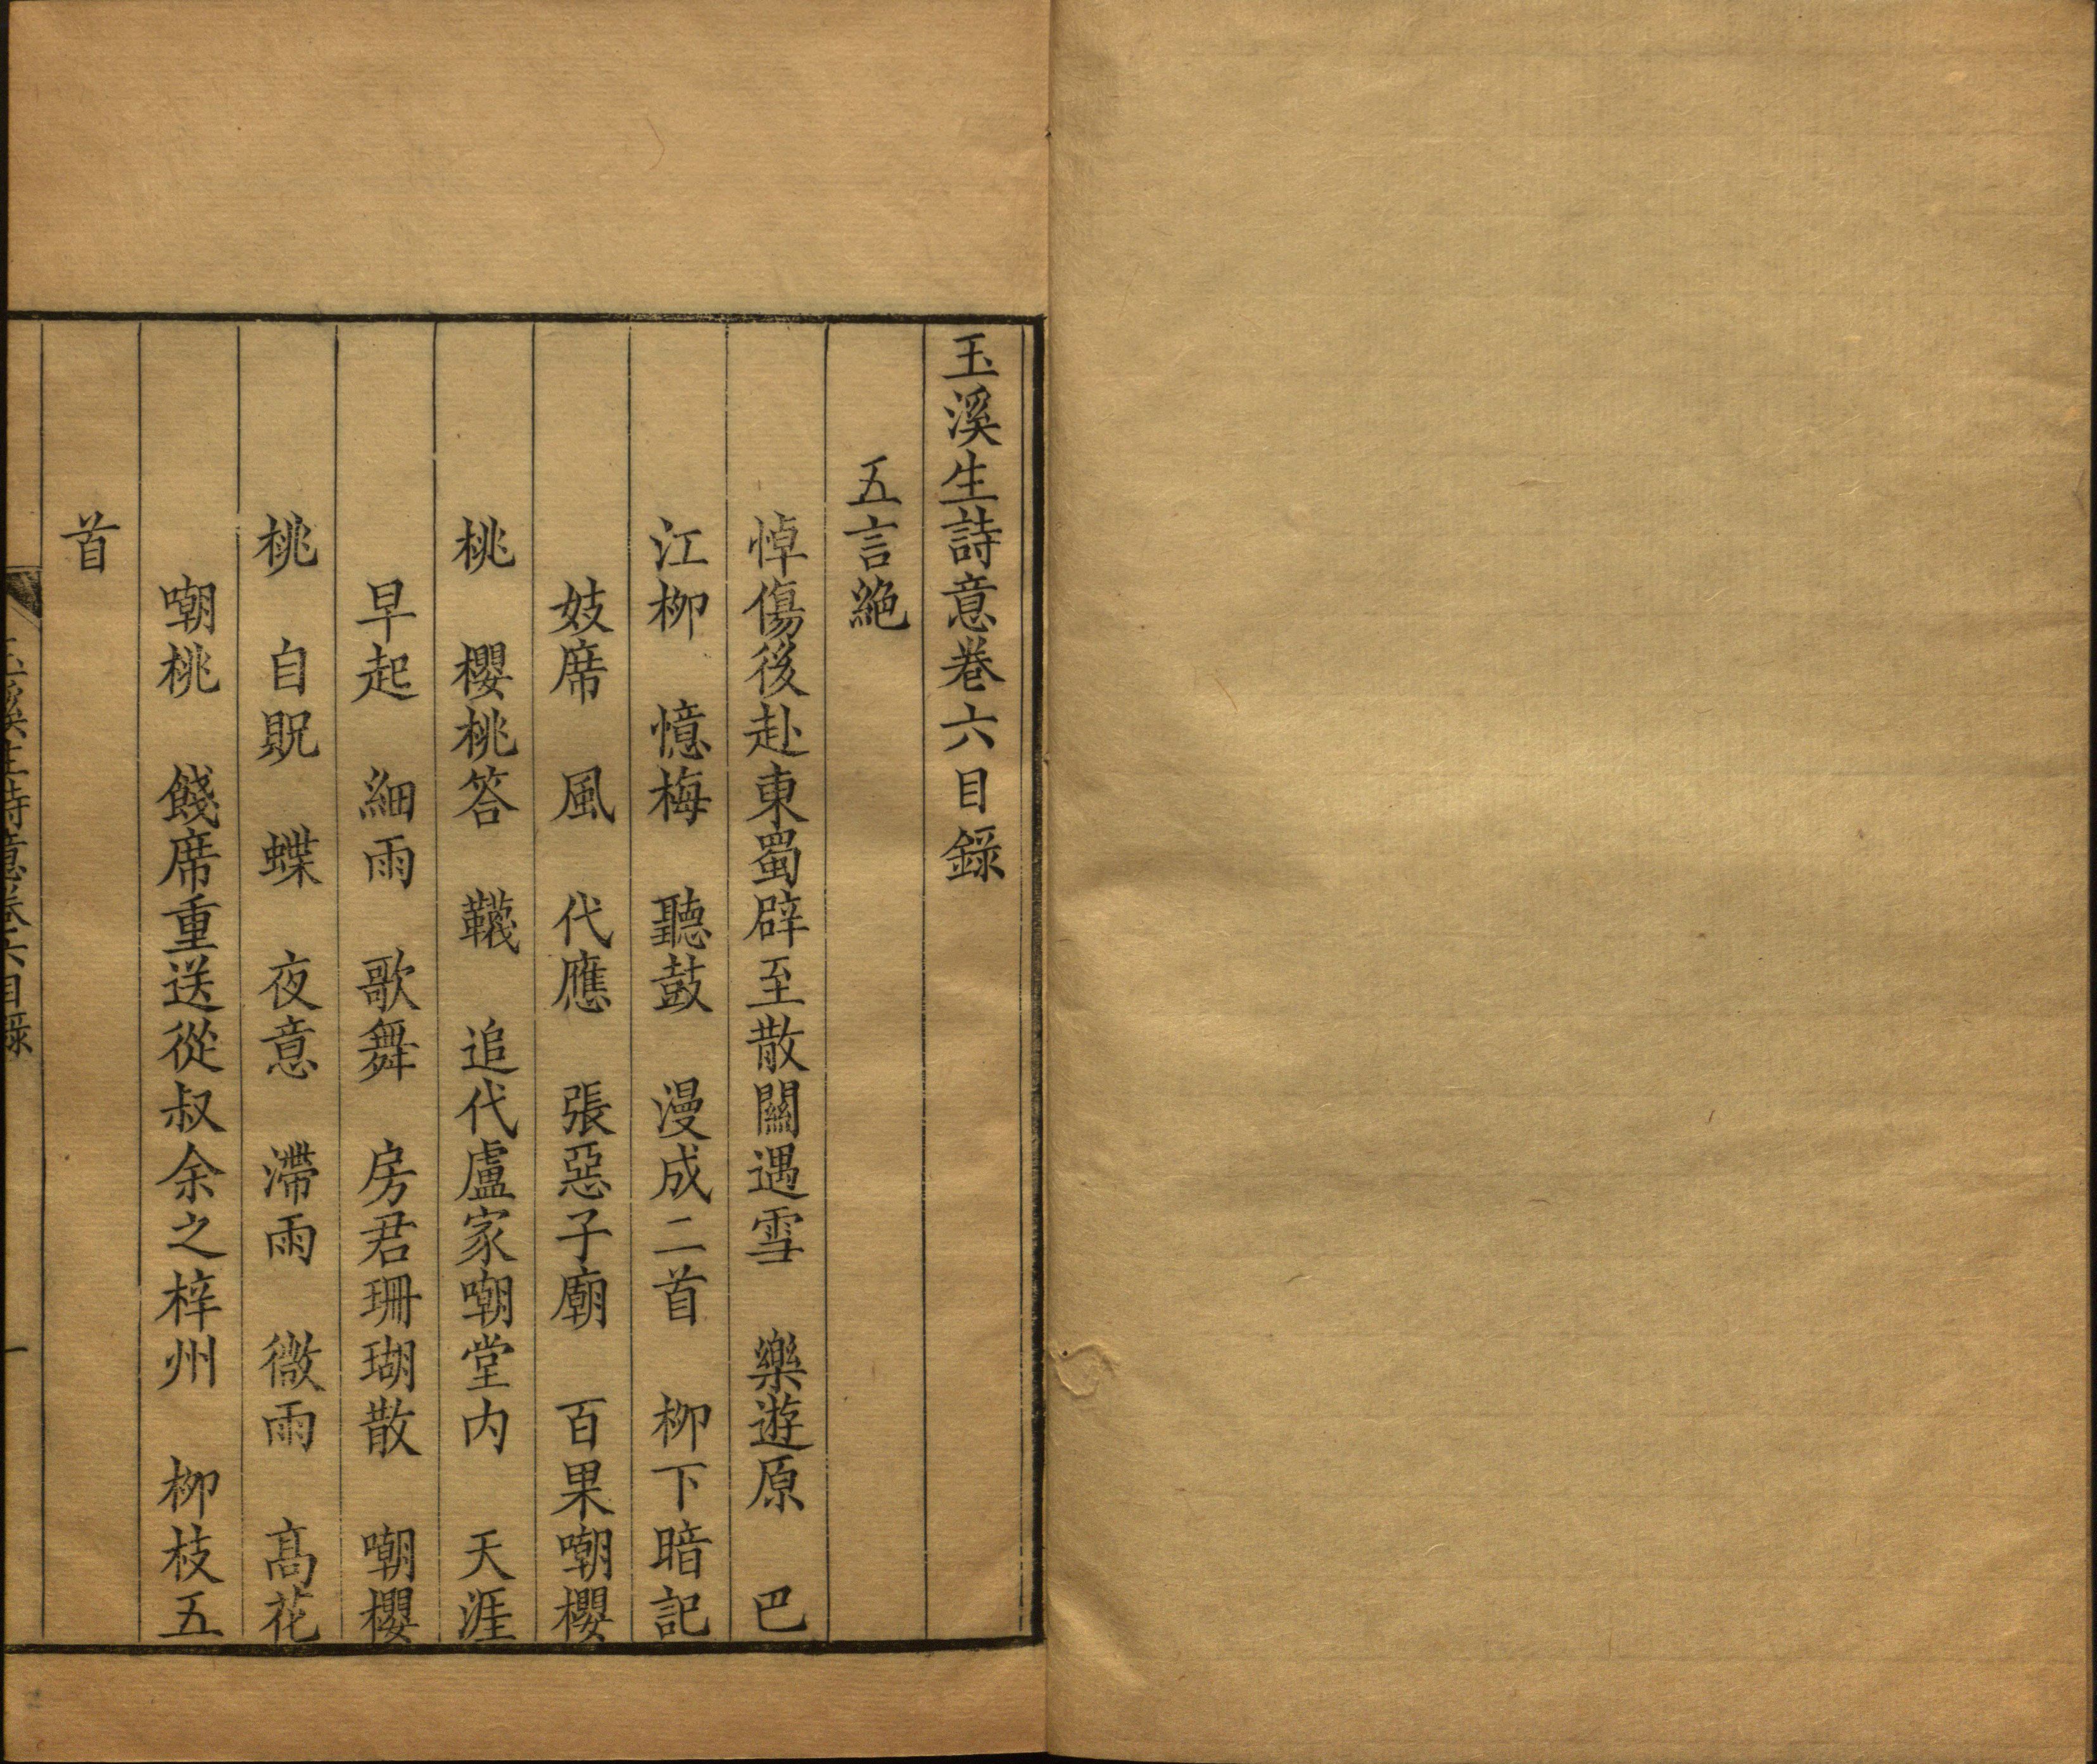 玉溪生詩意卷六目錄
五言絶
悼傷後赴東蜀辟至散關遇雪　樂遊原　巴
江柳　憶梅　聽鼓　漫成二首　柳下暗記
妓席　風　代應　張惡子廟　百果嘲櫻
桃　櫻桃答　韈　追代盧家嘲堂内　天涯
早起　細雨　歌舞　房君珊瑚散　嘲櫻
桃　自貺　蝶　夜意　滯雨　微雨　髙花
嘲桃　餞席重送從叔余之梓州　柳枝五
首
玉溪生詩意卷六目錄　一